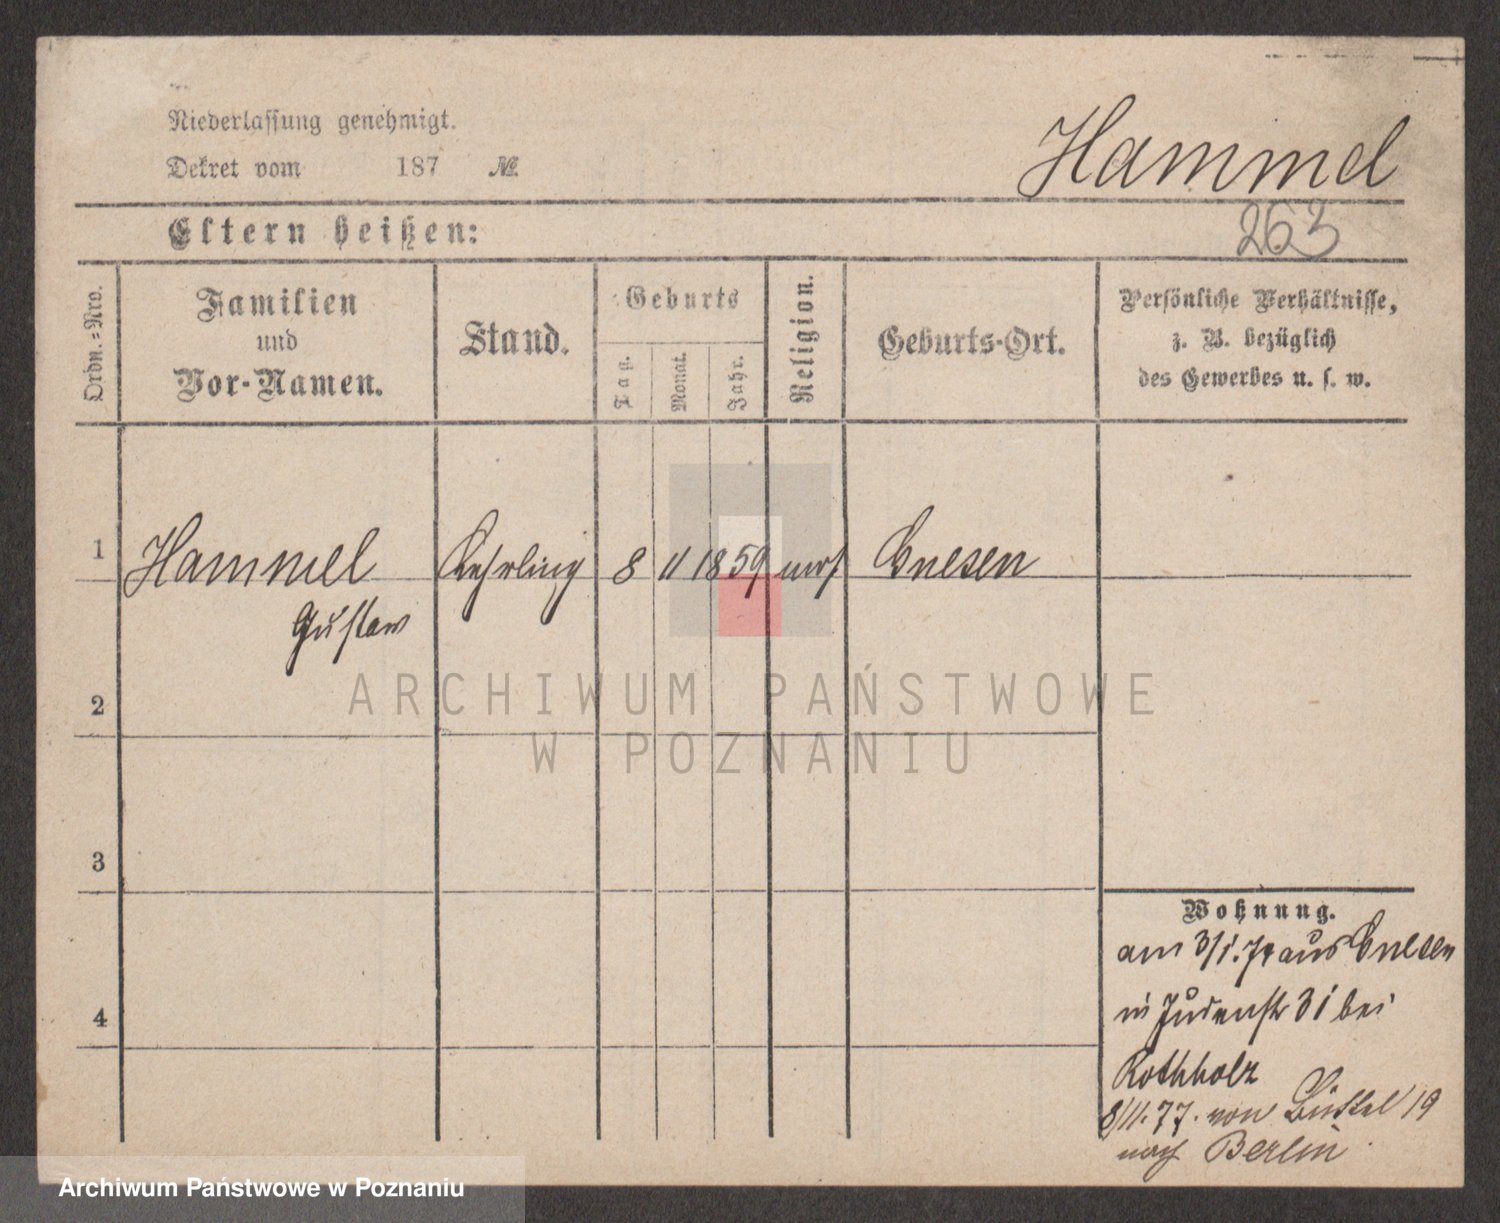 Niederlassung genehmigt.
Dekret vom 187 №
Hammel
263
Eltern heißen:
Ordn.=Nro.
Familien
und
Vor-Namen.
Stand.
Geburts
Tag.
Monat.
Jahr.
Religion.
Geburts-Ort.
Persönliche Verhältnisse,
z. B. bezüglich
des Gewerbes u. s. w.
1 Hammel Lehrling 8 11 1859 mos Gnesen
Gustaw
2
3
4
ARCHIWUM PAŃSTWOWE
W POZNANIU
Wohnung.
am 3/1. aus Gnesen
in Judenstr 31 bei
Rothholz
8/11. 77. von Büttel 19
nach Berlin
Archiwum Państwowe w Poznaniu